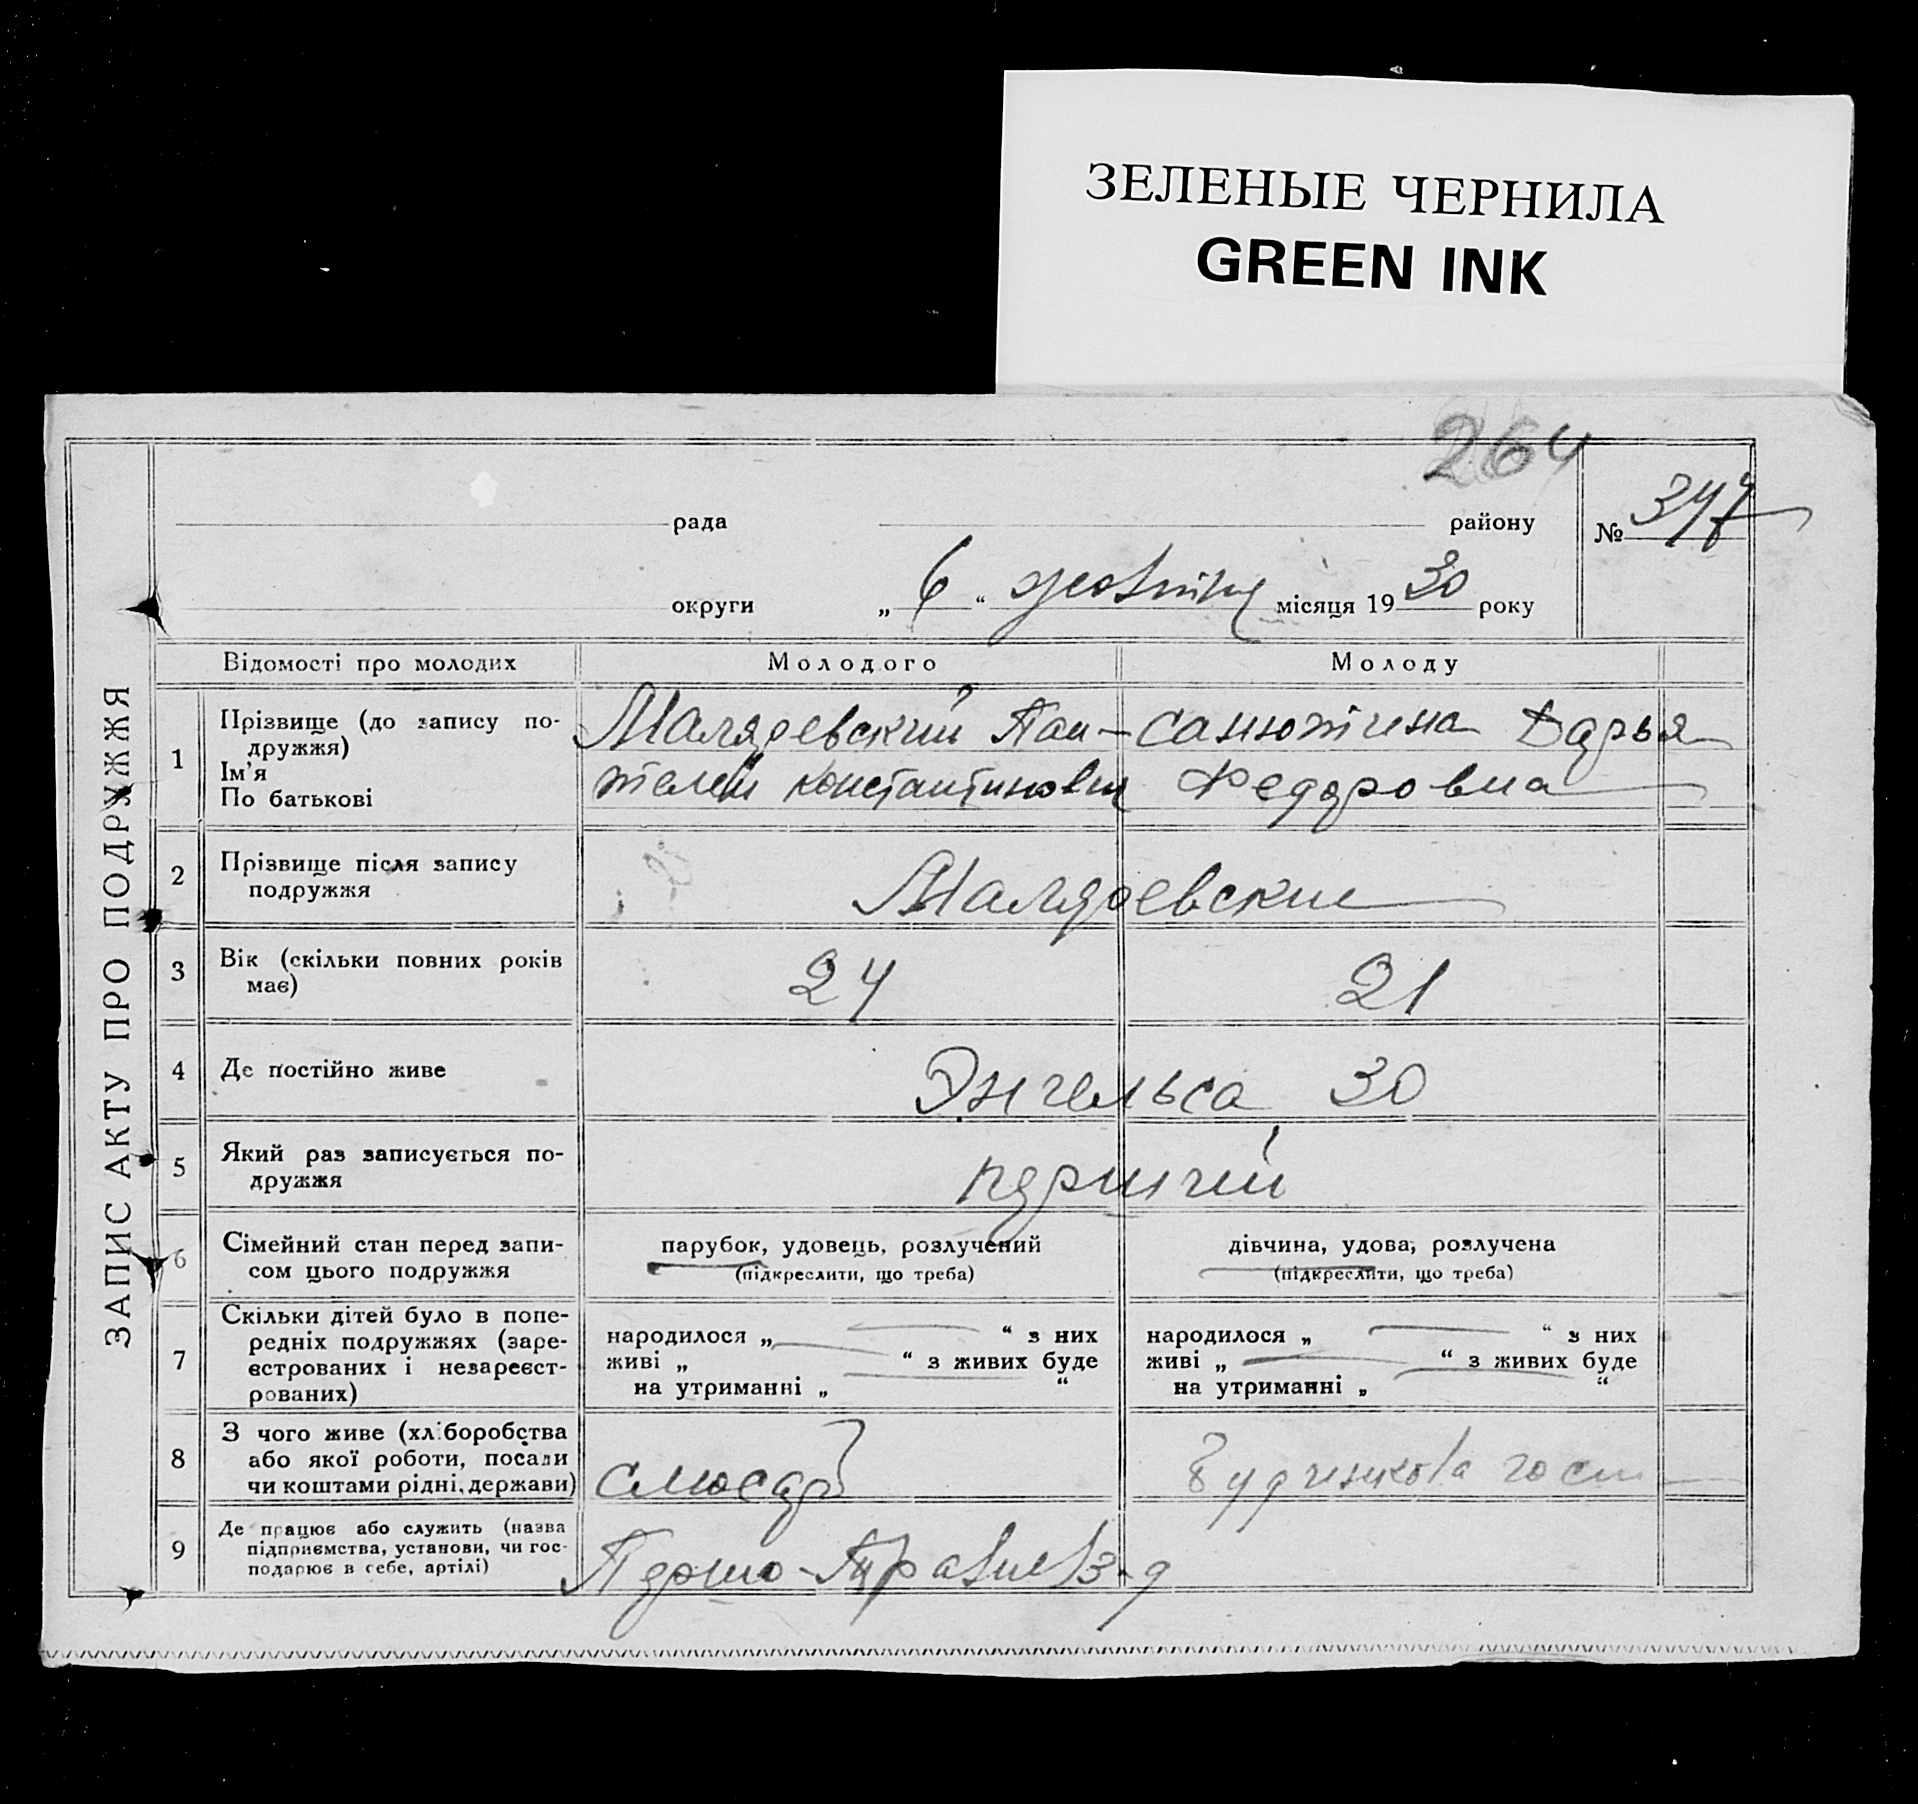 ЗЕЛЕНЫЕ ЧЕРНИЛА
GREEN INK
264
рада району № 347
округи „ 6 “ жовтня місяця 19 30 року
ЗАПИС АКТУ ПРО ПОДРУЖЖЯ
Відомості про молодих Молодого Молоду
1 Прізвище (до запису по-
дружжя)
Ім’я
По батькові
Пан-
телей Константинович
Дарья
Федоровна
2 Прізвище після запису
подружжя
3 Вік (скільки повних років
має)
24 21
4 Де постійно живе
Энгельса 30
5 Який раз записується по-
дружжя
перший
6 Сімейний стан перед запи-
сом цього подружжя
парубок, удовець, розлучений
(підкреслити, що треба)
дівчина, удова, розлучена
(підкреслити, що треба)
7 Скільки дітей було в попе-
редніх подружжях (заре-
єстрованих і незареєст-
рованих)
народилося „ “ з них
живі „ “ з живих буде
на утриманні „ “
народилося „ “ з них
живі „ “ з живих буде
на утриманні „ “
8 З чого живе (хліборобства
або якої роботи, посади
чи коштами рідні, держави)
слюсарь
9 Де працює або служить (назва
підприємства, установи, чи гос-
подарює в себе, артілі)